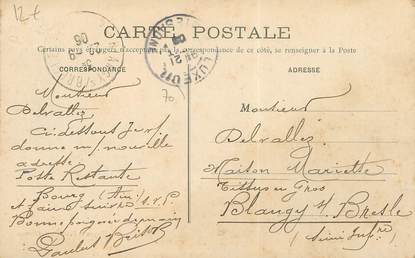 12 €
CARTE POSTALE
Certains pays étrangers n'acceptant pas la correspondance de ce côté, se renseigner à la Poste
CORRESPONDANCE
ADRESSE
LUXEUIL
70
Monsieur
Delvallez
Ci dessous
donne m/ nouvelle
adresse
Poste Restante
Bourg (Ain)
et faire suivre s.v.p.
Bonne poignée de main
Monsieur
Delvallez
Maison Mariette
Tissus en Gros
Blangy s/ Bresle
(Seine Infre)